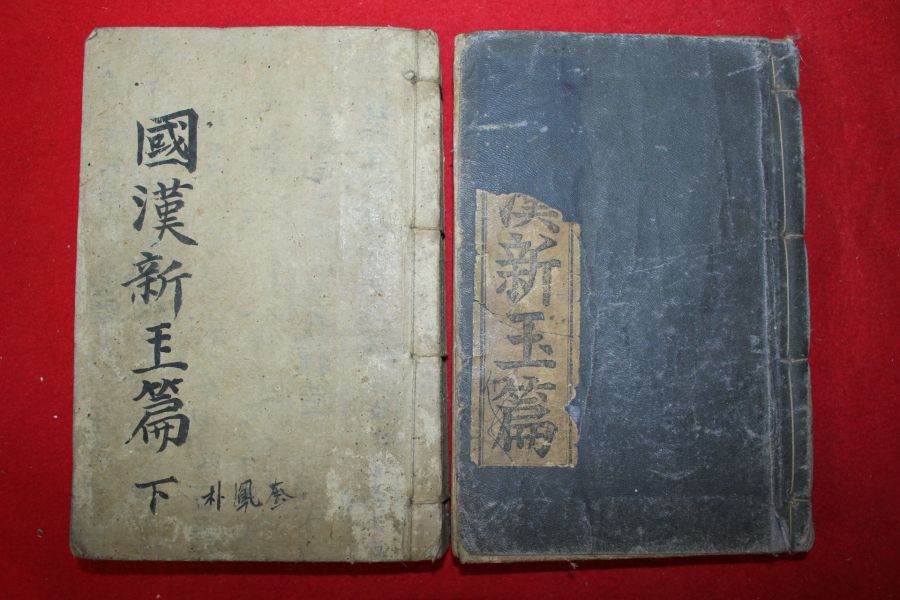 國漢新玉篇
下
朴鳳奎
漢新玉篇